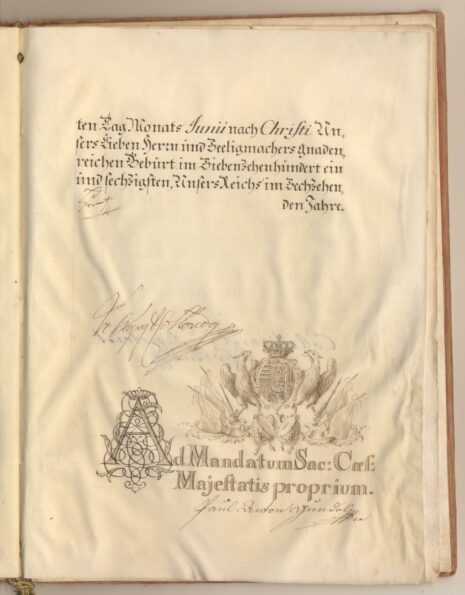 ten Tag Monats Junii nach Christi Un,
sers Lieben Herrn und Seeligmachers gnaden,
reichen Gebürt im Siebenzehenhundert ein
und sechzigsten, Unsers Reichs im Sechzehen,
den Jahre.
Ad Mandatum Sac: Cæs:
Majestatis proprium.
Paul Anton